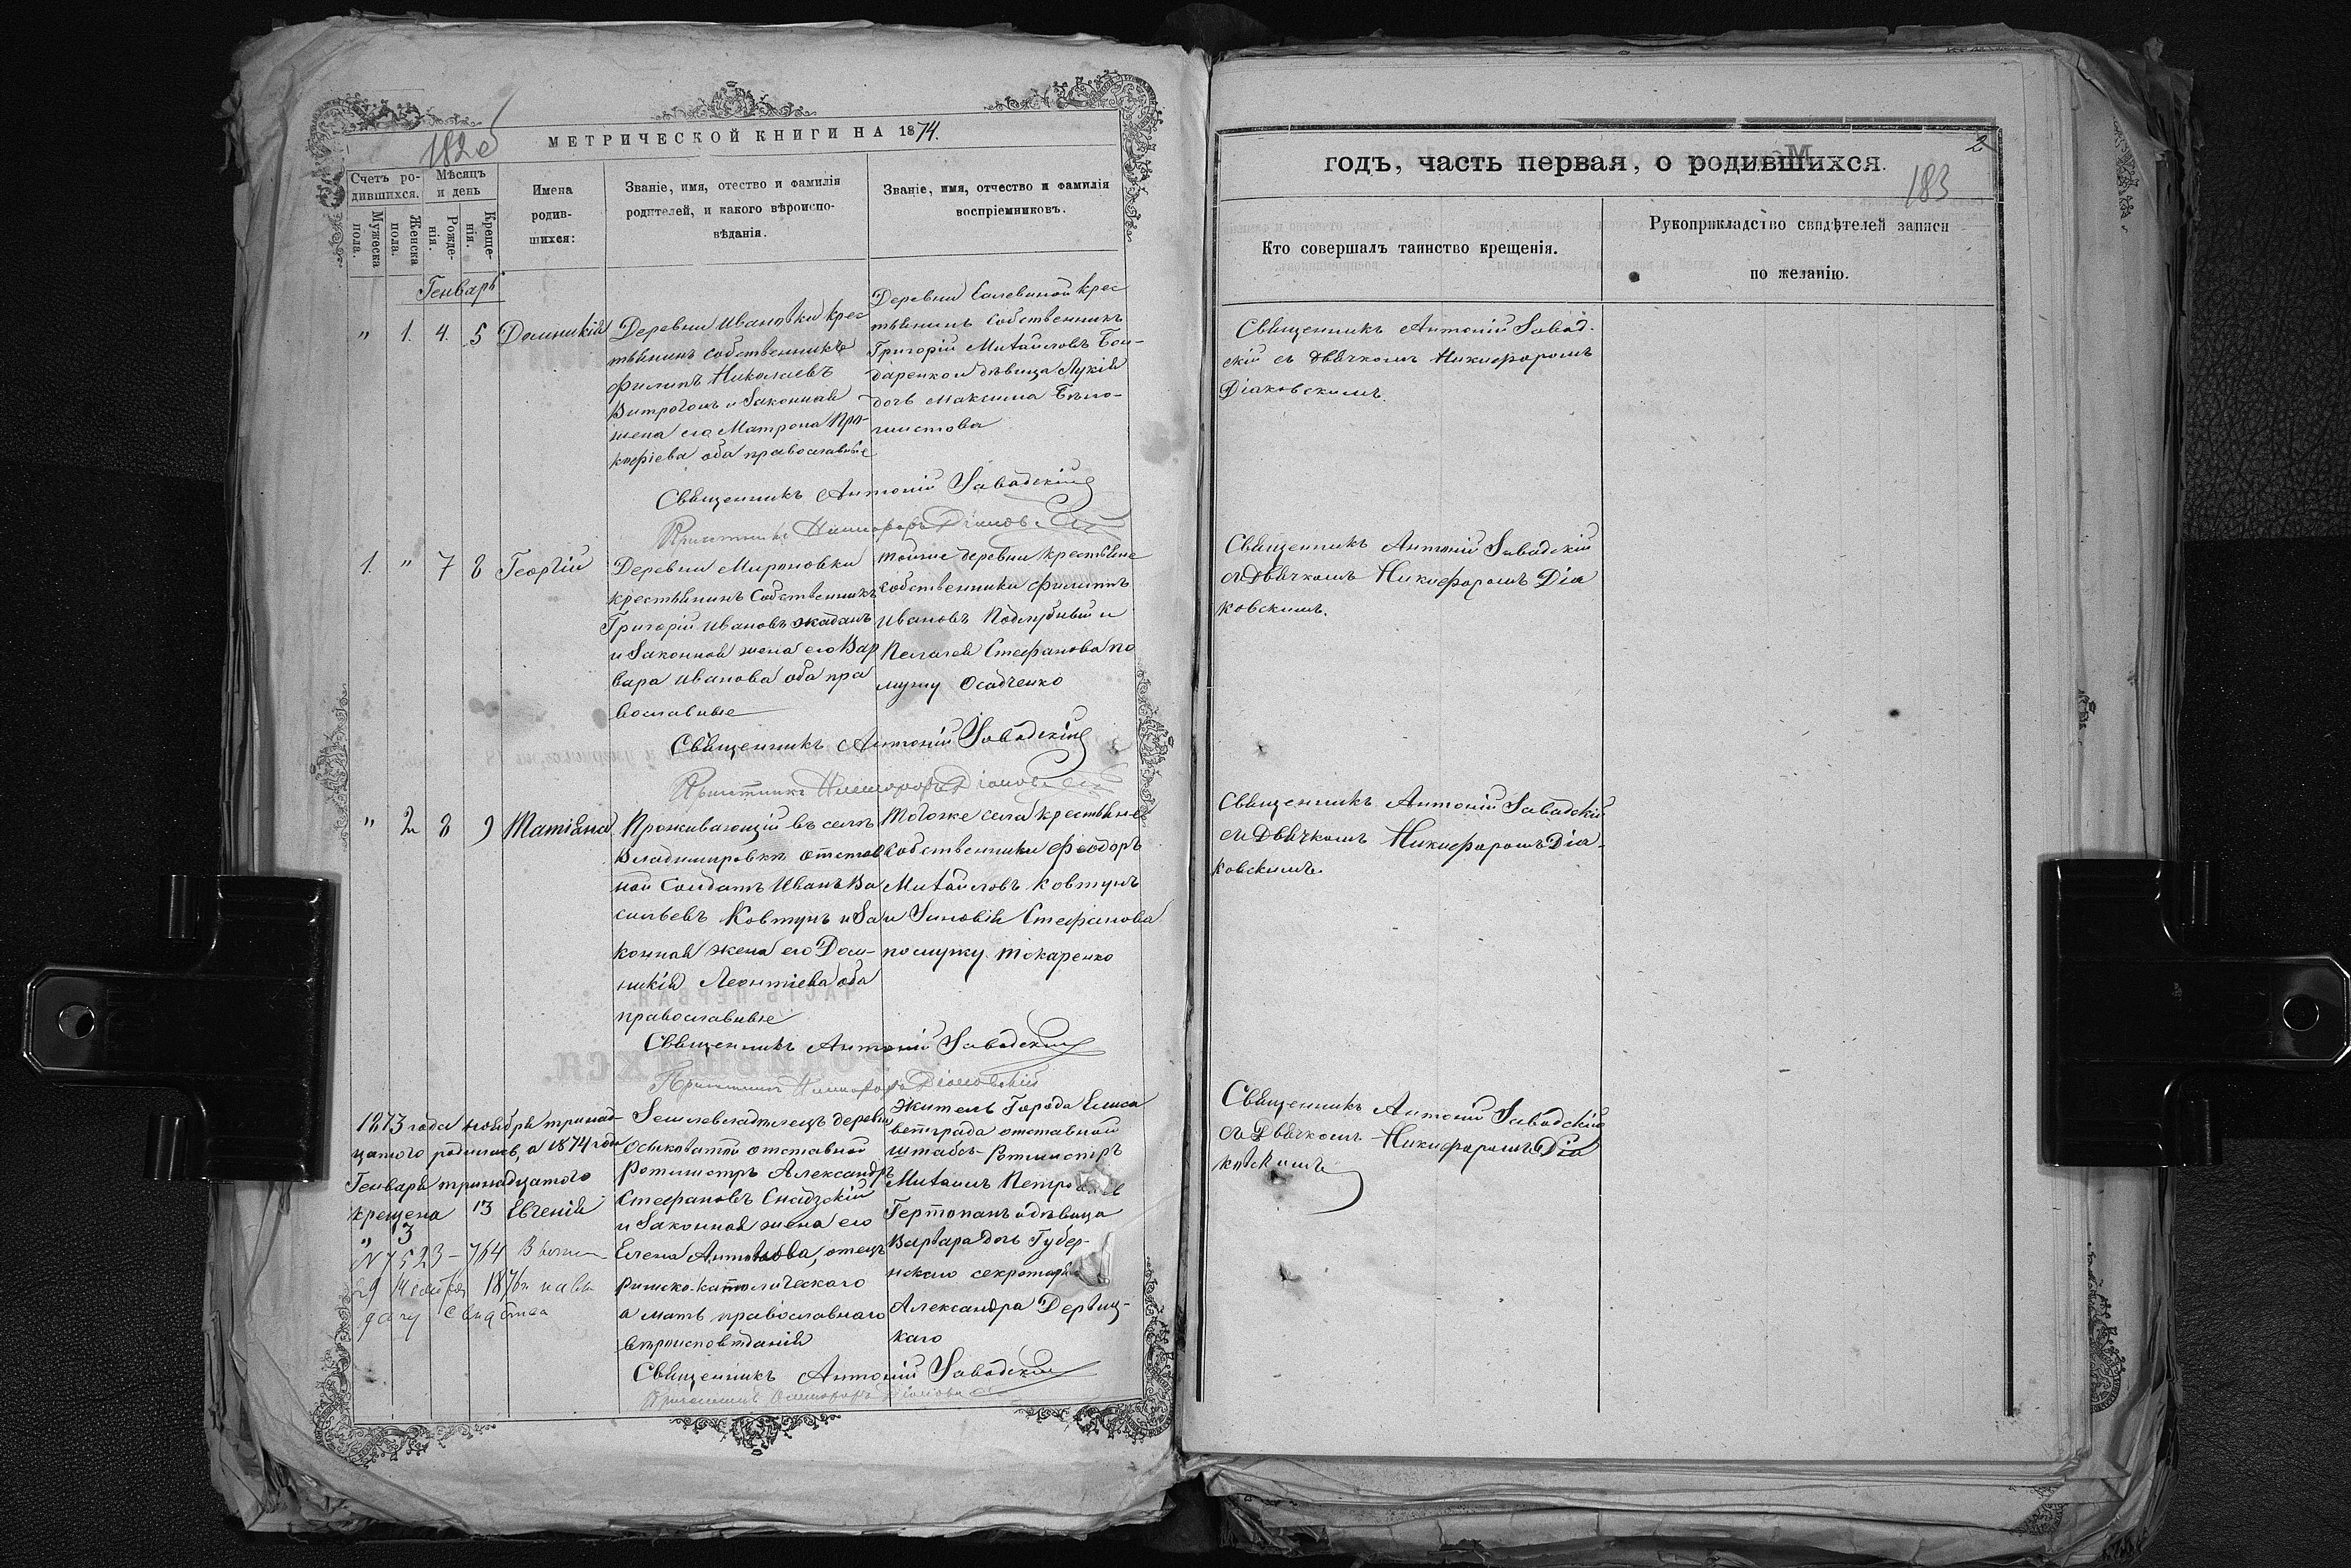 182об
МЕТРИЧЕСКОЙ КНИГИ НА 1874.
Счетъ ро-
дившихся.
Мужеска пола.
Женска пола.
Мѣсяцъ
и день
Рожде-
нія.
Креще-
нія.
Имена
родив-
шихся:
Званіе, имя, отество и фамилія
родителей, и какого вѣроиспо-
вѣданія.
Званіе, имя, отчество и фамилія
воспріемниковъ.
Генварь
" 1. 4. 5 Домникія
Деревни Ивановки крес
тьянинъ собственникъ
Филипъ Николаевъ
и Законная
жена его Матрона Про-
кофіева оба православные
Деревни крес
тьянинъ собственникъ
Григорій Михайловъ Бон-
даренко и дѣвица Лукія
дочь Максима
Священникъ Антоній Завадскій
Причетникъ Никифоръ Діаковскій
1 " 7 8 Георгій
Деревни Мироновки
крестьянинъ собственникъ
Григорій Ивановъ Жаданъ
и Законная жена его Вар
вара Иванова оба пра
вославные
тойже деревни крестьяне
собственники Филиппъ
Ивановъ Подлубный и
Пелагея Стефанова по
мужу Осадченко
Священникъ Антоній Завадскій
Причетникъ Никифоръ Діаковскій
" 2 8 9 Татіана
Проживающій въ селѣ
Владимировкѣ отстав
ной Солдатъ Иванъ Ва
сильевъ Ковтунъ и За
конная жена его Дом-
никія Леонтіева оба
православные
Тогоже села крестьяне
собственники Феодоръ
Михайловъ Ковтунъ
и Зиновія Стефанова
по мужу Токаренко
Священникъ Антоній Завадскій
Причетникъ Никифоръ Діаковскій
1873 года ноября тринад-
цатого родилась, а 1874 года
Генваря тринадцатого
крещена 13 Евгенія
" 3
N 7523-764
29 1876 на вы
дачу свид
Землевладелецъ деревни
Осиковатой отставной
Ротмистръ Александръ
Стефановъ
и Законная жена его
Елена Антонова, отецъ
Римско-католическаго
а мать православнаго
вѣроисповѣданія
Житель Города Елиса
ветграда отставной
штабсъ-Ротмистръ
Михаилъ
и дѣвица
Варвара дочь Губер-
нскаго секретаря
Александра
каго
Священникъ Антоній Завадскій
Причетникъ Никифоръ Діаковскій
2
годъ, часть первая, о родившихся.
183
Кто совершалъ таинство крещенія.
Рукоприкладство свидѣтелей записи
по желанію.
Священникъ Антоній Завад-
скій съ Дьячкомъ Никифоромъ
Діаковскимъ.
Священникъ Антоній Завадскій
съ Дьячкомъ Никифоромъ Діа
ковскимъ.
Священникъ Антоній Завадскій
съ Дьячкомъ Никифоромъ Діа-
ковскимъ.
Священникъ Антоній Завадскій
съ Дьячкомъ Никифоромъ Діа
ковскимъ